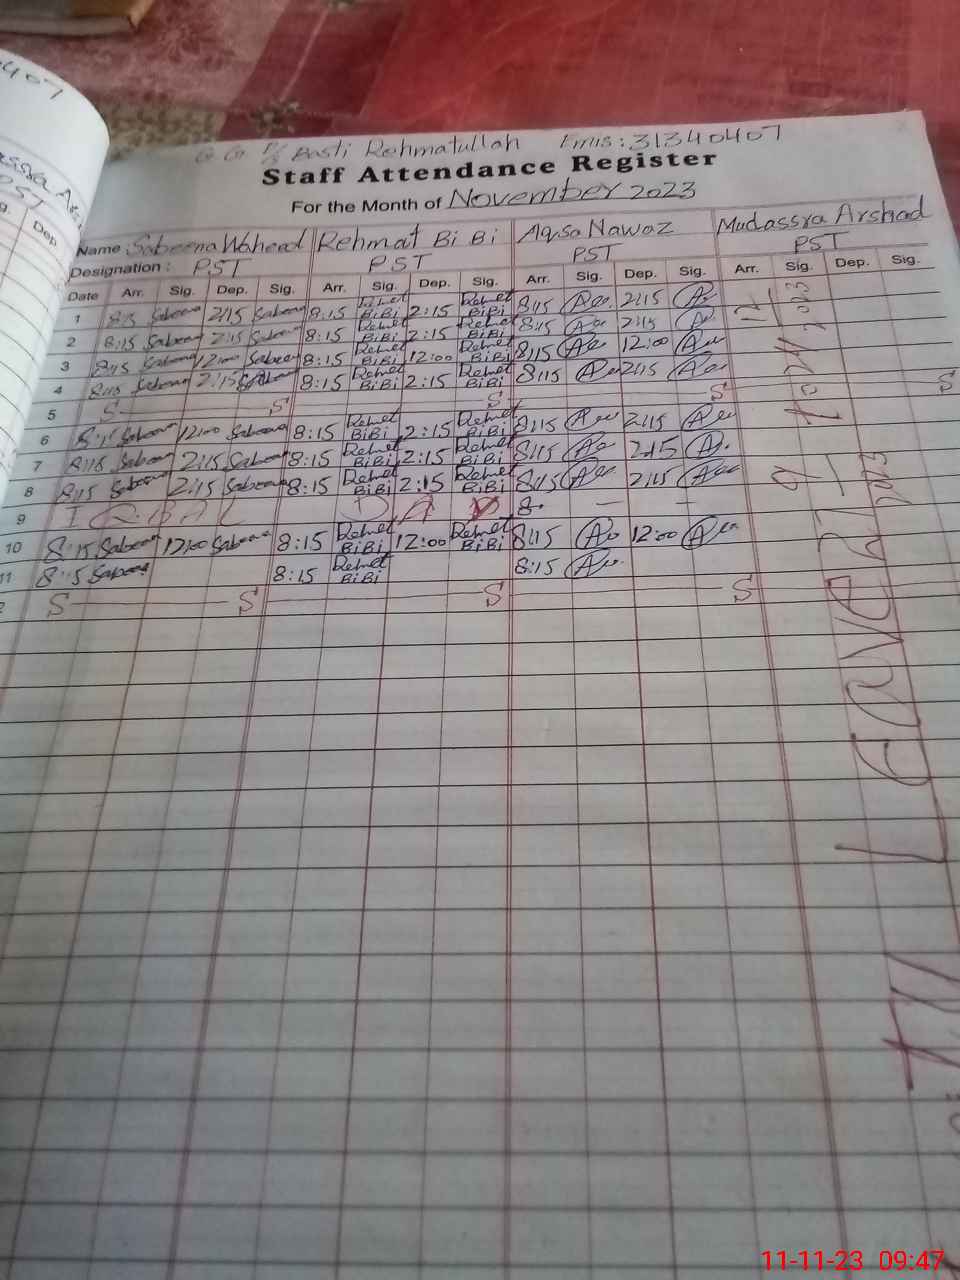 G.G P/S Basti Rehmatullah Emis: 31340407
Staff Attendance Register
For the Month of November 2023
Name: Sabeena Waheed Rehmat Bi Bi Aqsa Nawaz Mudassra Arshad
Designation: PST PST PST PST
Date Arr. Sig. Dep. Sig. Arr. Sig. Dep. Sig. Arr. Sig. Dep. Sig. Arr. Sig. Dep. Sig.
1 8:15 Sabeena 2:15 Sabeena 8:15 Rehmat BiBi 2:15 Rehmat BiBi 8:15 2:15
2 8:15 Sabeena 2:15 Sabeena 8:15 Rehmat BiBi 2:15 Rehmat BiBi 8:15 2:15
3 8:15 Sabeena 12:00 Sabeena 8:15 Rehmat BiBi 12:00 Rehmat BiBi 8:15 12:00
4 8:15 Sabeena 2:15 Sabeena 8:15 Rehmat BiBi 2:15 Rehmat BiBi 8:15 2:15
5 S S S S S
6 8:15 Sabeena 12:00 Sabeena 8:15 Rehmat BiBi 2:15 Rehmat BiBi 8:15 2:15
7 8:15 Sabeena 2:15 Sabeena 8:15 Rehmat BiBi 2:15 Rehmat BiBi 8:15 2:15
8 8:15 Sabeena 2:15 Sabeena 8:15 Rehmat BiBi 2:15 Rehmat BiBi 8:15 2:15
9 IQBAL DAY 8. — —
10 8:15 Sabeena 12:00 Sabeena 8:15 Rehmat BiBi 12:00 Rehmat BiBi 8:15 12:00
11 8:15 Sabeena 8:15 Rehmat BiBi 8:15
S S S S
Leave
11-11-23 09:47